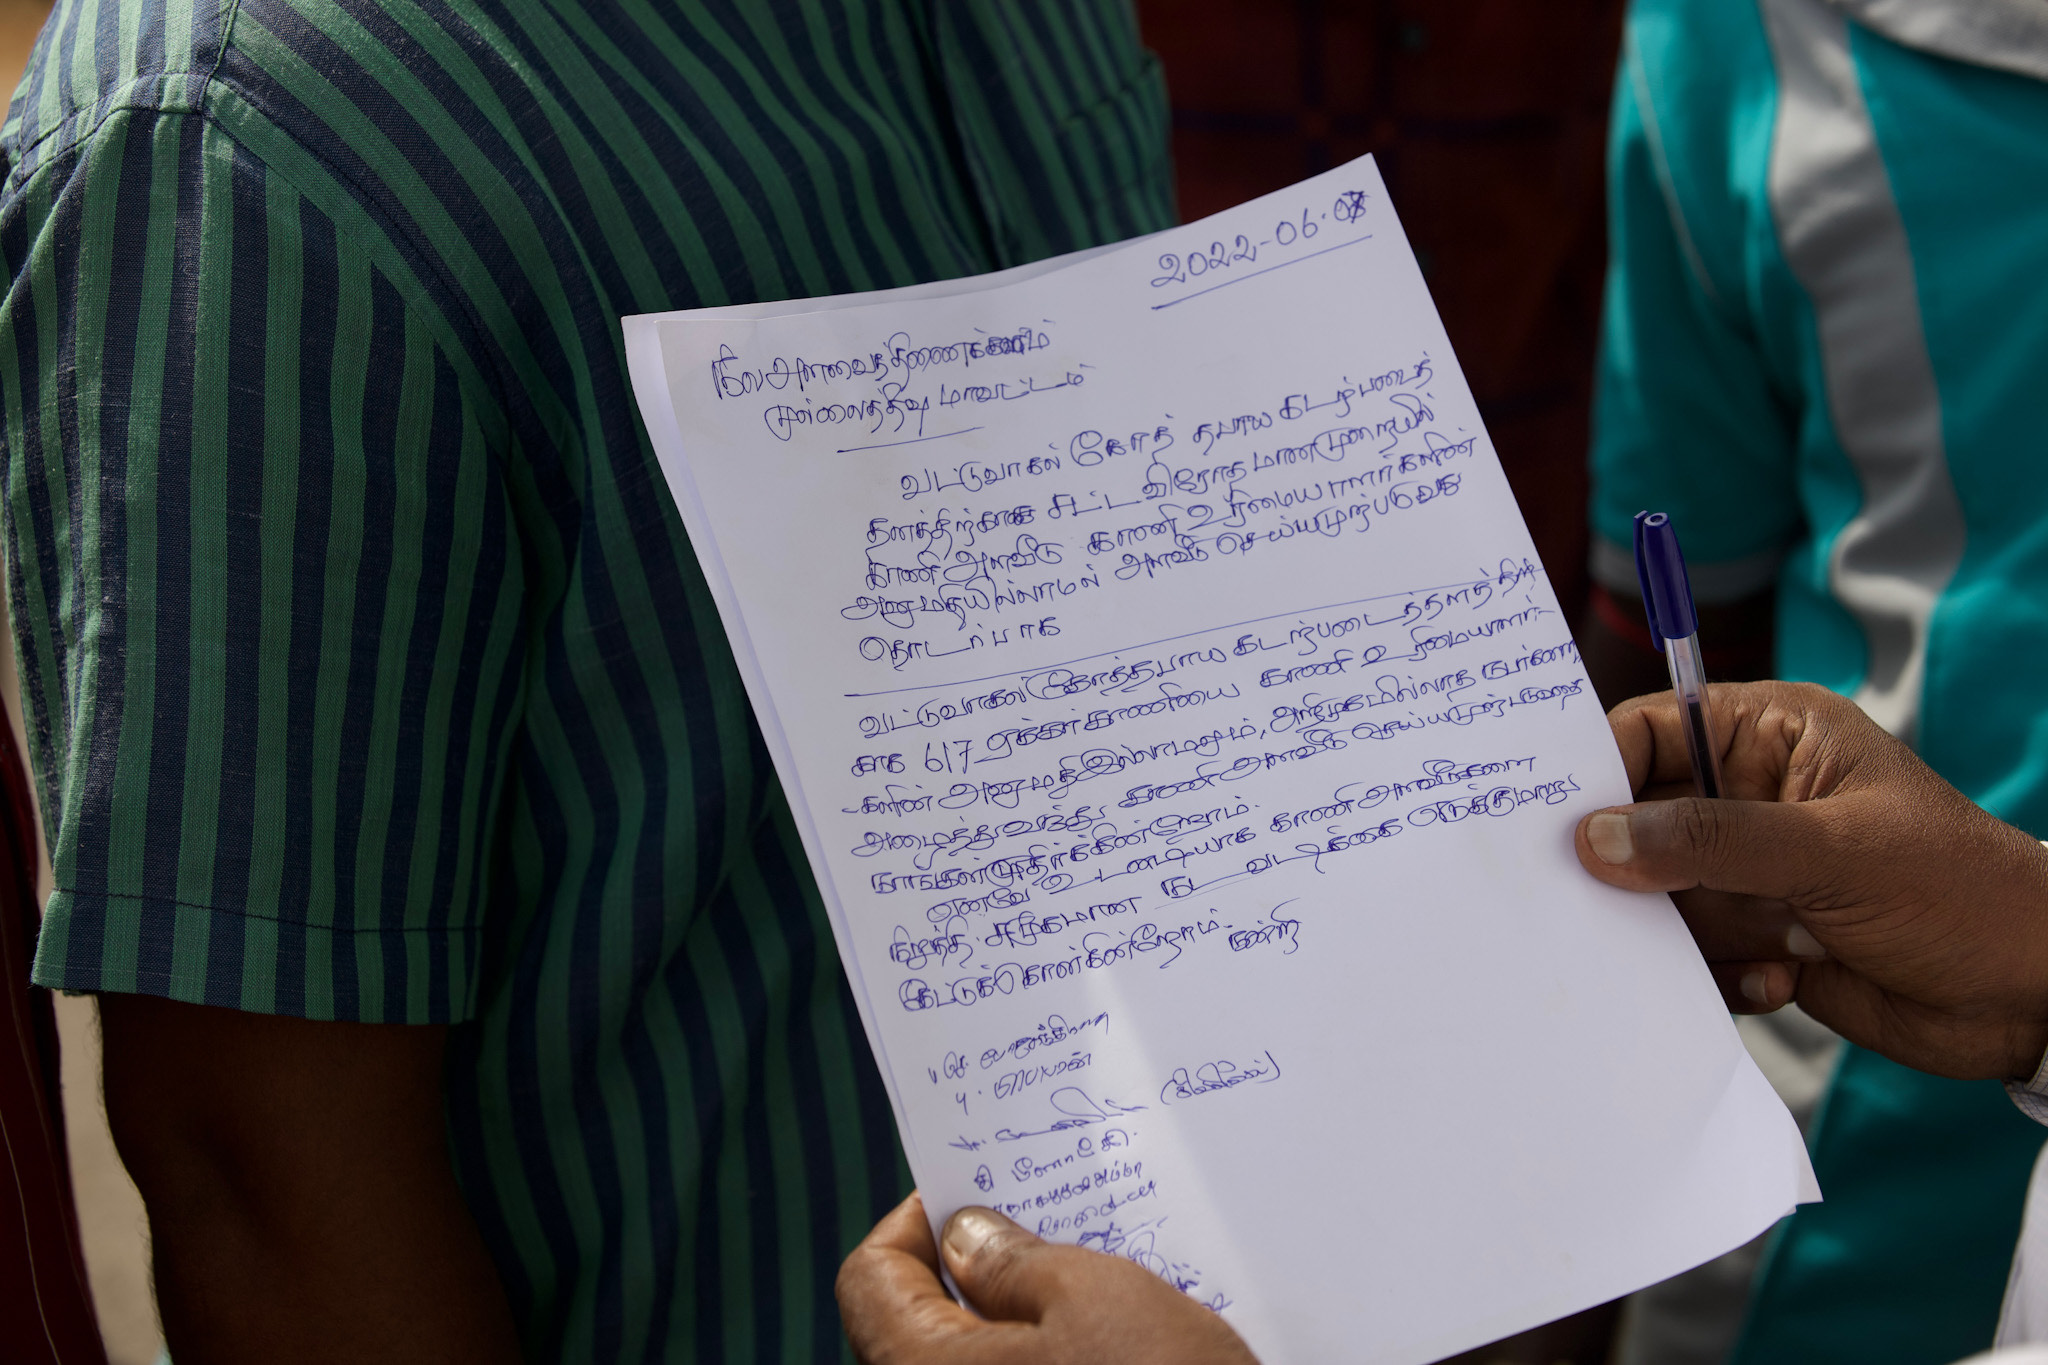 2022-06-07
நில அளவைத்திணைக்களம்
முல்லைத்தீவு மாவட்டம்
வட்டுவாகல் கோத் தபாய கடற்படைத்
தளத்திற்காக சட்டவிரோதமானமுறையில்
காணி அளவீடு காணி உரிமையாளர்களின்
அனுமதியில்லாமல் அளவீடு செய்யமுற்படுவது
தொடர்பாக
வட்டுவாகல் கோத்தபாய கடற்படைத்தளத்திற்
காக 617 ஏக்கர் காணியை காணி உரிமையாளர்-
-களின் அனுமதிஇல்லாமலும், அறிமுகமில்லாத நபர்களை
அழைத்துவந்து காணி அளவீடு செய்யமுற்படுவதை
நாங்கள் எதிர்க்கின்றோம்.
எனவே உடனடியாக காணி அளவீடுகளை
நிறுத்தி சுமுகமான நடவடிக்கை எடுக்குமாறு
கேட்டுக்கொள்கின்றோம். நன்றி